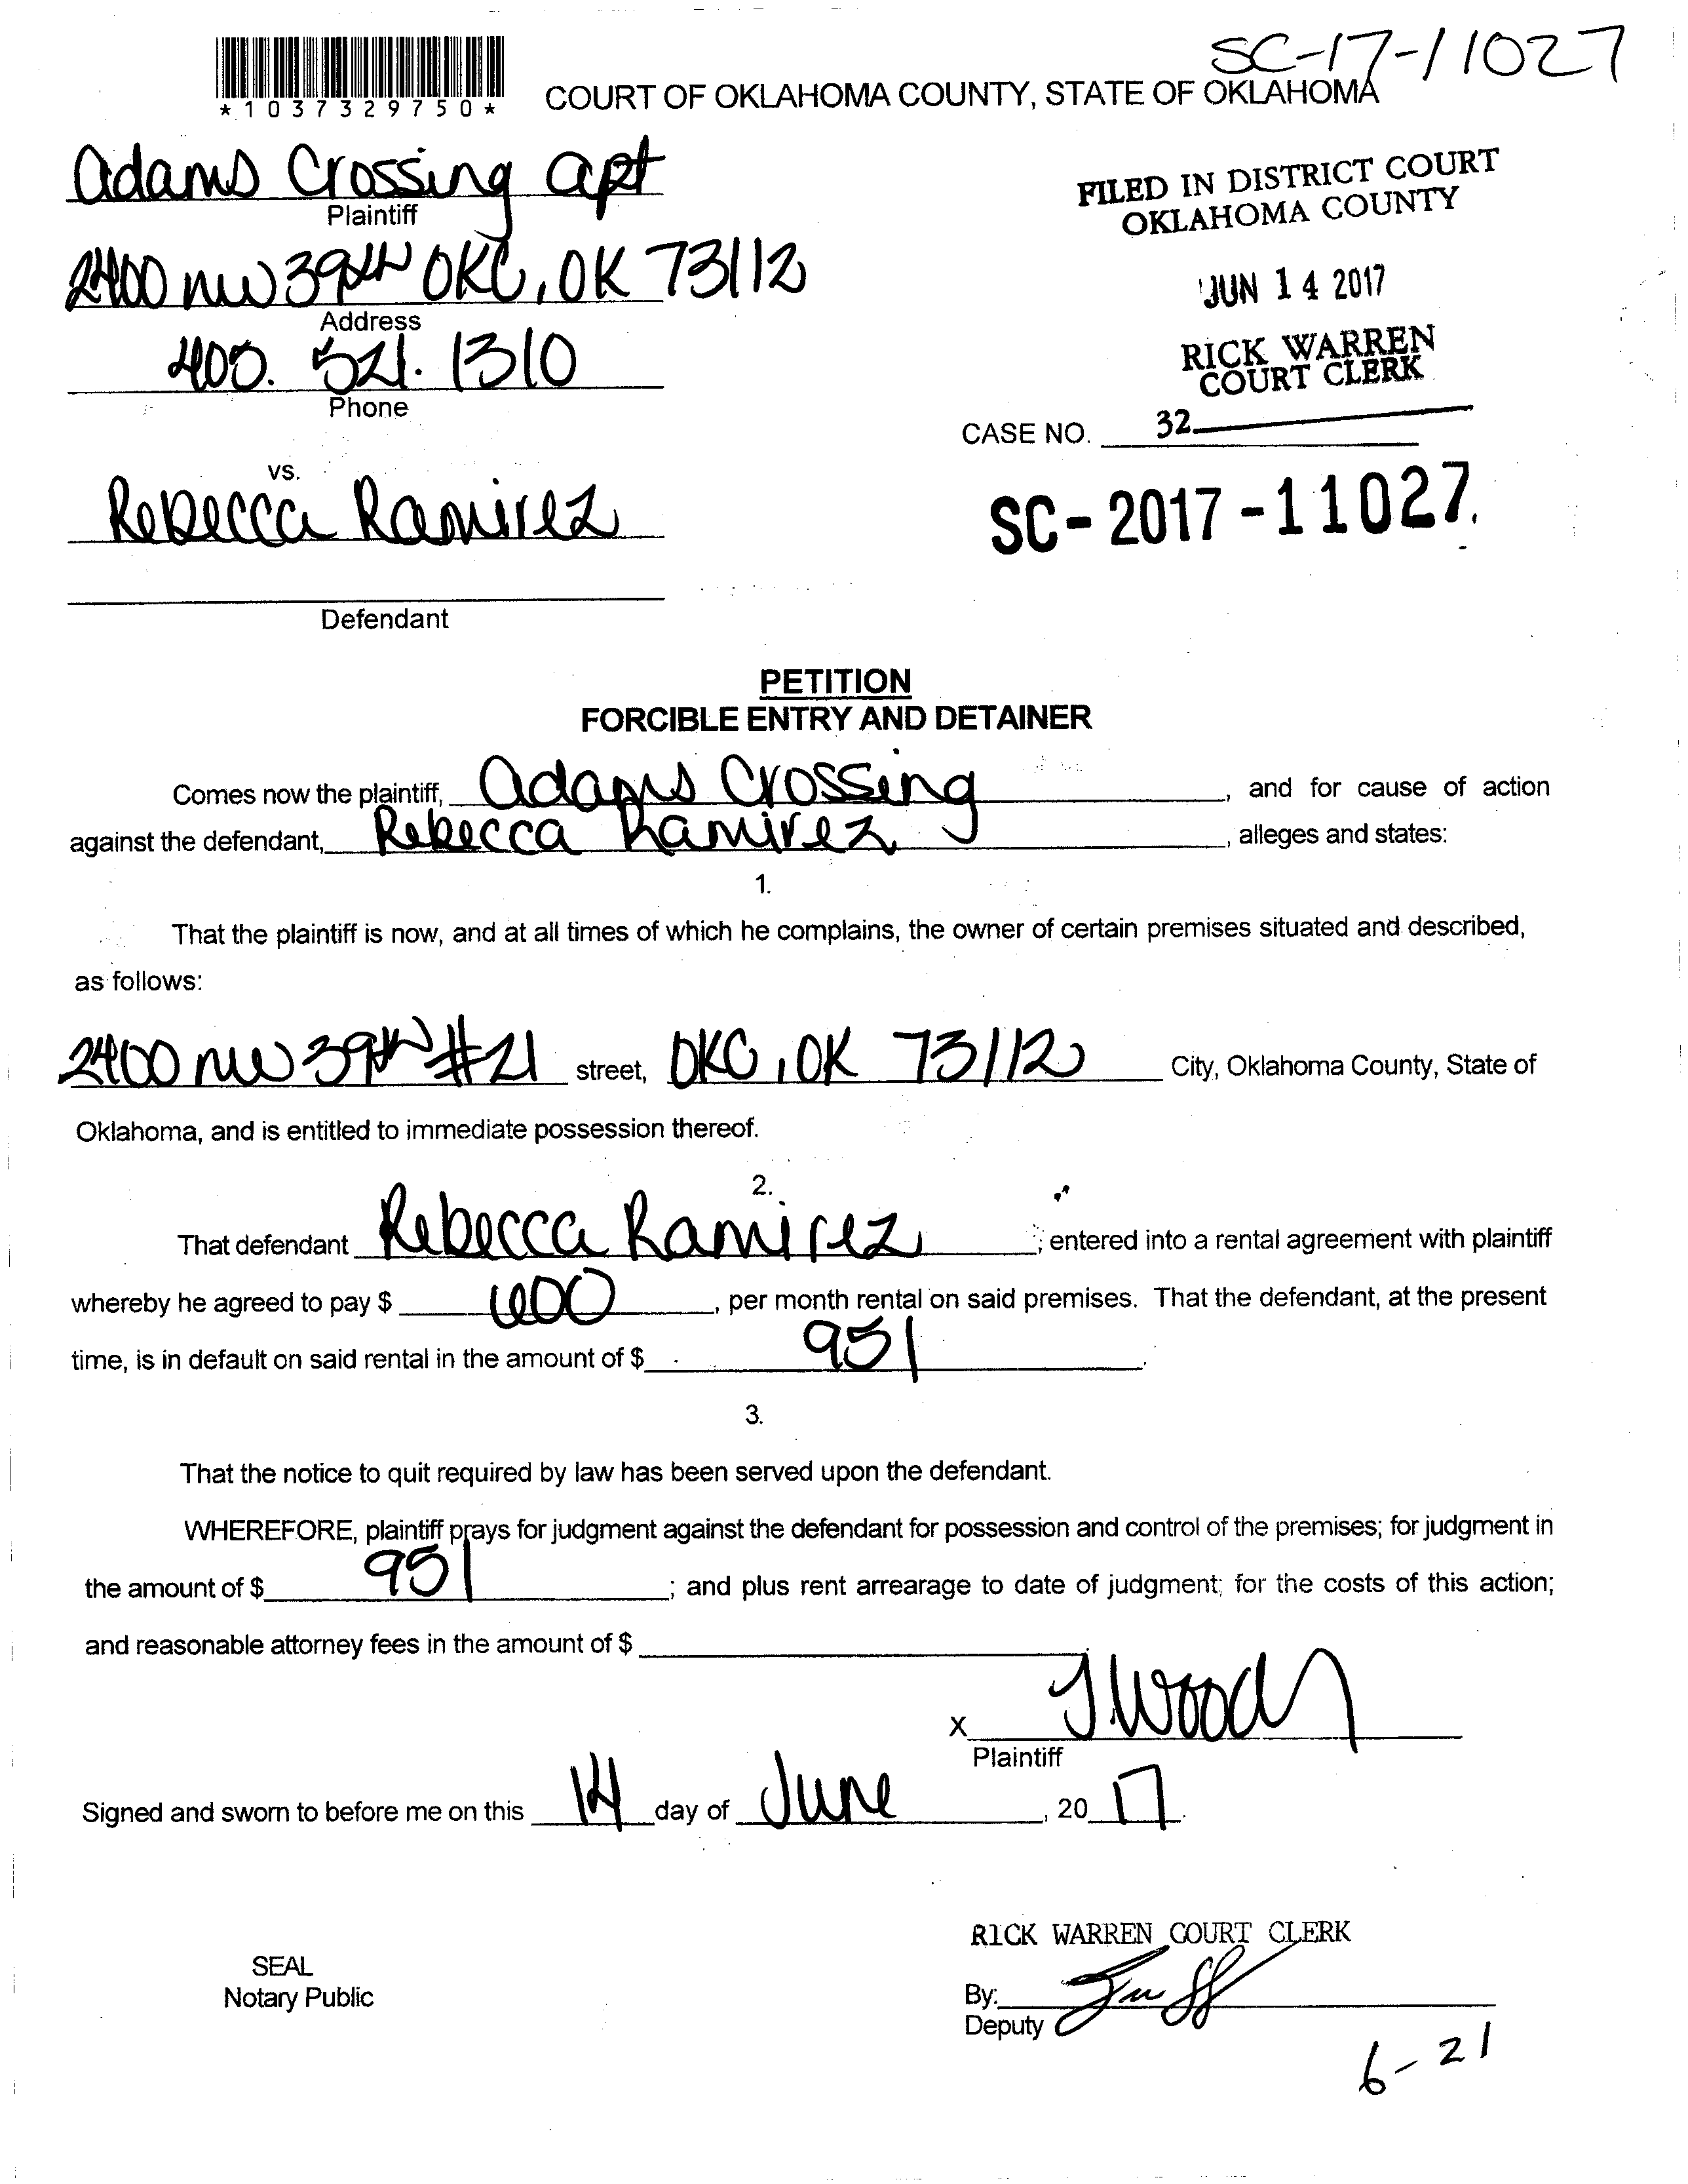 SC-17-11027
*1037329750*
COURT OF OKLAHOMA COUNTY, STATE OF OKLAHOMA
Adams Crossing apt
Plaintiff
FILED IN DISTRICT COURT
OKLAHOMA COUNTY
2400 NW 39th OKC, OK 73112
Address
JUN 14 2017
405. 521. 1310
Phone
RICK WARREN
COURT CLERK
CASE NO. 32
vs.
Rebecca Ramirez
SC-2017-11027
Defendant
PETITION
FORCIBLE ENTRY AND DETAINER
Comes now the plaintiff, Adams Crossing, and for cause of action
against the defendant, Rebecca Ramirez, alleges and states:
1.
That the plaintiff is now, and at all times of which he complains, the owner of certain premises situated and described,
as follows:
2400 NW 39th #21 street, OKC, OK 73112 City, Oklahoma County, State of
Oklahoma, and is entitled to immediate possession thereof.
2.
That defendant Rebecca Ramirez, entered into a rental agreement with plaintiff
whereby he agreed to pay $ 600, per month rental on said premises. That the defendant, at the present
time, is in default on said rental in the amount of $ 951.
3.
That the notice to quit required by law has been served upon the defendant.
WHEREFORE, plaintiff prays for judgment against the defendant for possession and control of the premises; for judgment in
the amount of $ 951; and plus rent arrearage to date of judgment; for the costs of this action;
and reasonable attorney fees in the amount of $
X J Woody
Plaintiff
Signed and sworn to before me on this 14 day of June, 20 17.
RICK WARREN COURT CLERK
SEAL
Notary Public
By:
Deputy
6-21